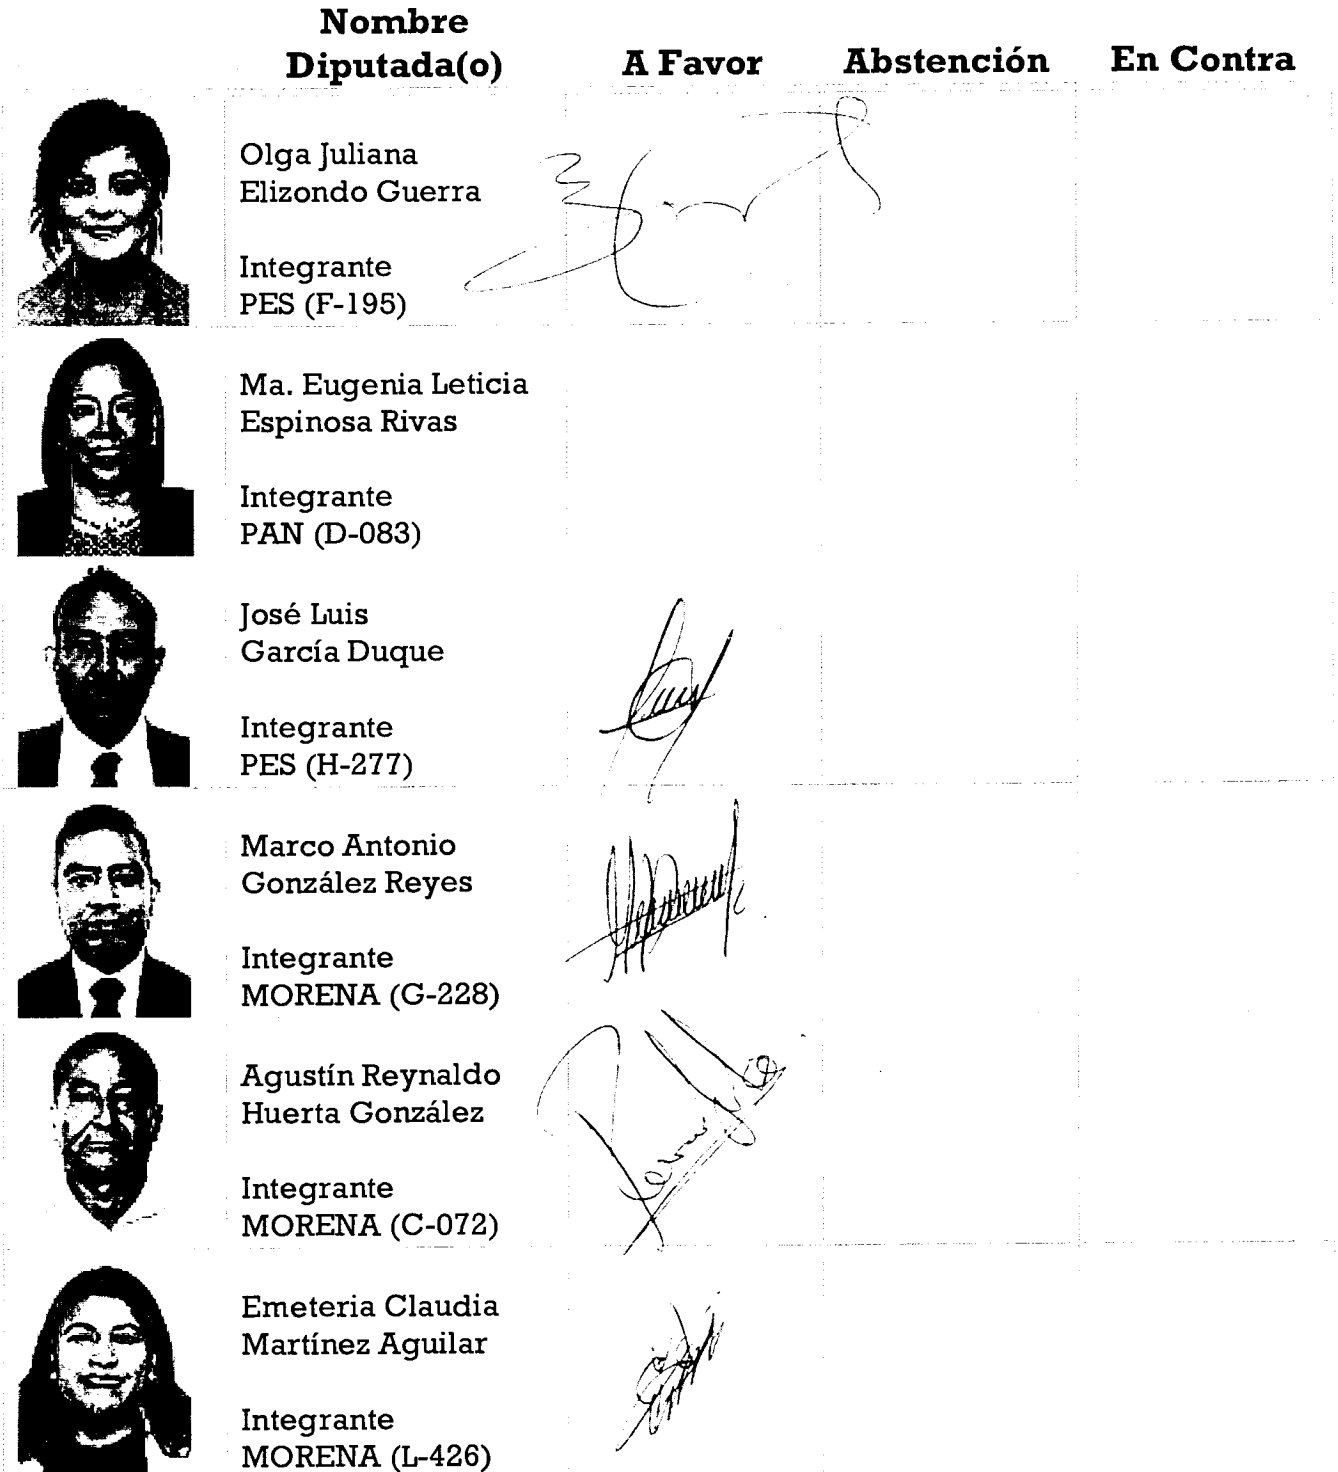 Nombre
Diputada(o)
A Favor
Abstención
En Contra
Olga Juliana
Elizondo Guerra
Integrante
PES (F-195)
Ma. Eugenia Leticia
Espinosa Rivas
Integrante
PAN (D-083)
José Luis
García Duque
Integrante
PES (H-277)
Marco Antonio
González Reyes
Integrante
MORENA (G-228)
Agustín Reynaldo
Huerta González
Integrante
MORENA (C-072)
Emeteria Claudia
Martínez Aguilar
Integrante
MORENA (L-426)